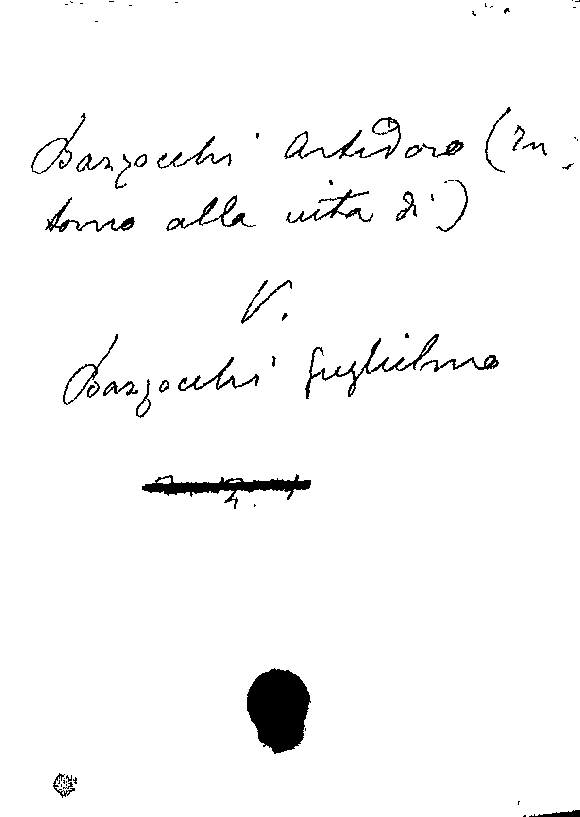 Bazzocchi Artidoro (In-
torno alla vita di)
V.
Bazzocchi Guglielmo